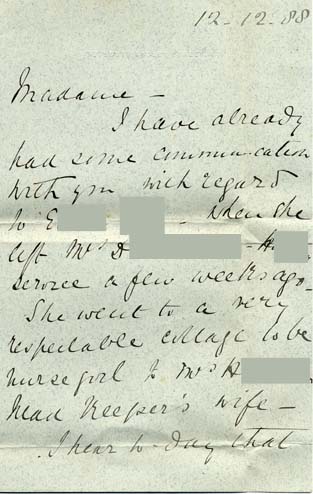 12-12-88
Madame -
I have already
had some communication
with you with regard
to E - when she
left Mrs D - H
service a few weeks ago -
She went to a very
respectable cottage to be
nursegirl to Mrs H
Head Keeper's wife -
I hear to-day that